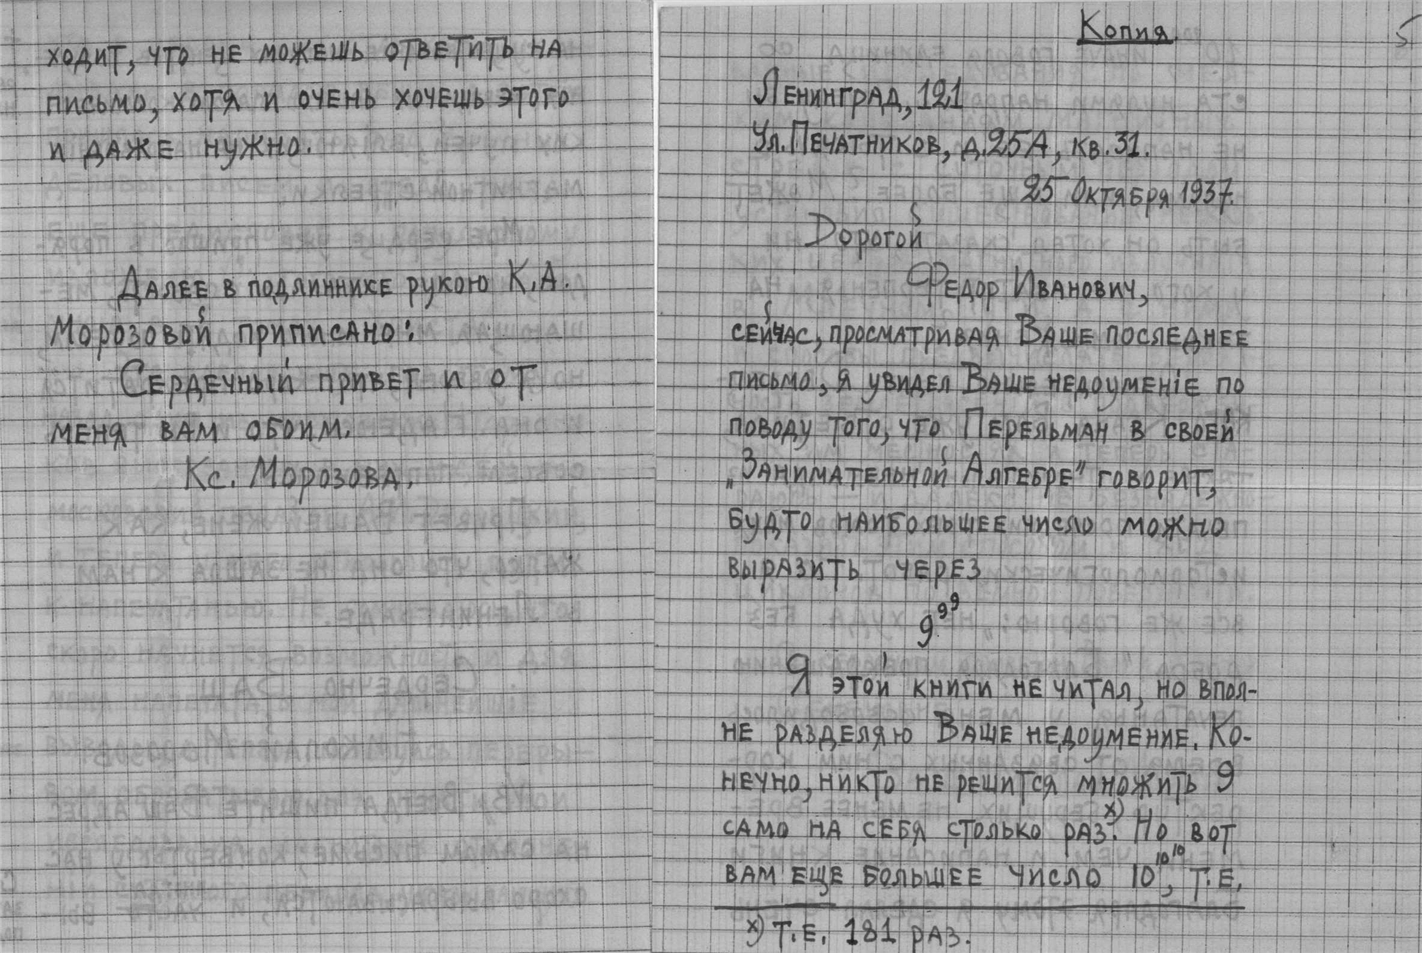 ходит, что не можешь ответить на
письмо, хотя и очень хочешь этого
и даже нужно.
Далее в подлиннике рукою К.А.
Морозовой приписано:
Сердечный привет и от
меня вам обоим.
Кс. Морозова.
Копия.
5
Ленинград, 121
Ул. Печатников, д.25А, кв.31.
25 Октября 1937.
Дорогой
Федор Иванович,
сейчас, просматривая Ваше последнее
письмо, я увидел Ваше недоуменіе по
поводу того, что Перельман в своей
„Занимательной Алгебре" говорит,
будто наибольшее число можно
выразить через
9⁹⁹
Я этой книги не читал, но впол-
не разделяю Ваше недоумение. Ко-
нечно, никто не решится множить 9
само на себя столько раз.ˣ⁾ Но вот
вам еще большее число 10¹⁰¹⁰, т.е.
х) т.е. 181 раз.